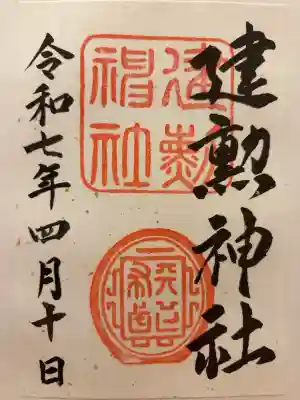 建勲神社
建勲
神社
令和七年四月十日